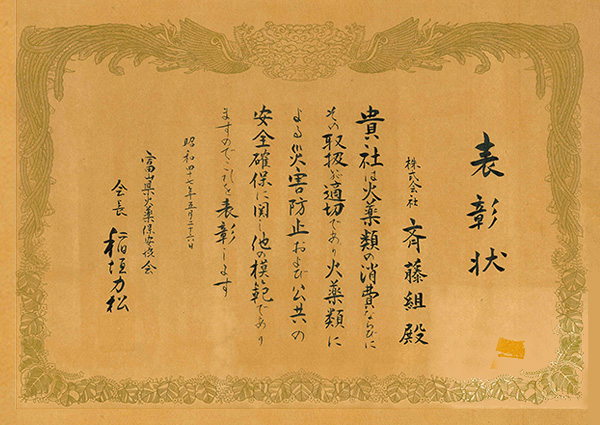 表彰状
株式会社 斉藤組殿
貴社は火薬類の消費ならびに
その取扱が適切であり火薬類に
よる災害防止および公共の
安全確保に関し他の模範であり
ますのでこれを表彰します
昭和四十七年五月二十六日
富山県火薬保安協会
会長 稲垣力松